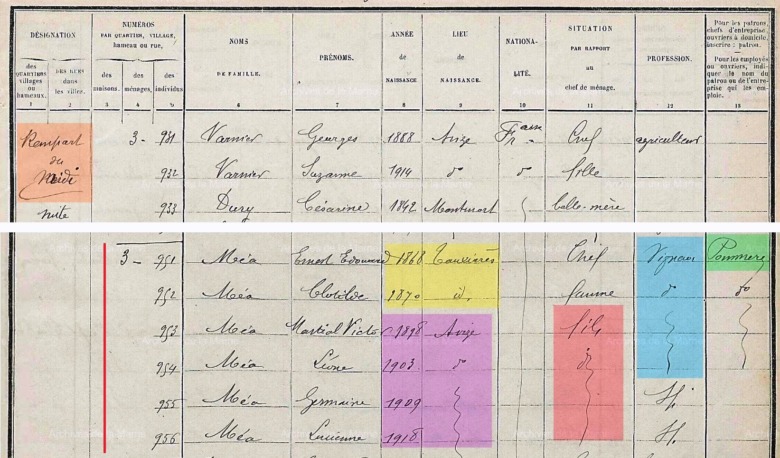 DÉSIGNATION
NUMÉROS
PAR QUARTIER, VILLAGE,
hameau ou rue,
NOMS
DE FAMILLE.
PRÉNOMS.
ANNÉE
de
NAISSANCE
LIEU
de
NAISSANCE.
NATIONA-
LITÉ.
SITUATION
PAR RAPPORT
au
chef de ménage.
PROFESSION.
Pour les patrons,
chefs d'entreprise,
ouvriers à domicile,
inscrire : patron.
Pour les employés
ou ouvriers, indi-
quer le nom du
patron ou de l'entre-
prise qui les em-
ploie.
des
QUARTIERS
villages
ou
hameaux.
DES RUES
dans
les villes.
des
maisons.
des
ménages.
des
individus
1 2 3 4 5 6 7 8 9 10 11 12 13
Rempart
du
Midi
suite
3 - 931 Varnier Georges 1888 Avize Fr Chef agriculteur
932 Varnier Suzanne 1914 d° d° fille
933 Dury Césarine 1842 belle-mère
3 - 951 Méa Ernest Edouard 1868 Chef Vigneron Pommery
952 Méa Clotilde 1870 id. femme d° d°
953 Méa Martial Victor 1898 Avize fils
954 Méa Léone 1903 d° d°
955 Méa Germaine 1909
956 Méa Lucienne 1918